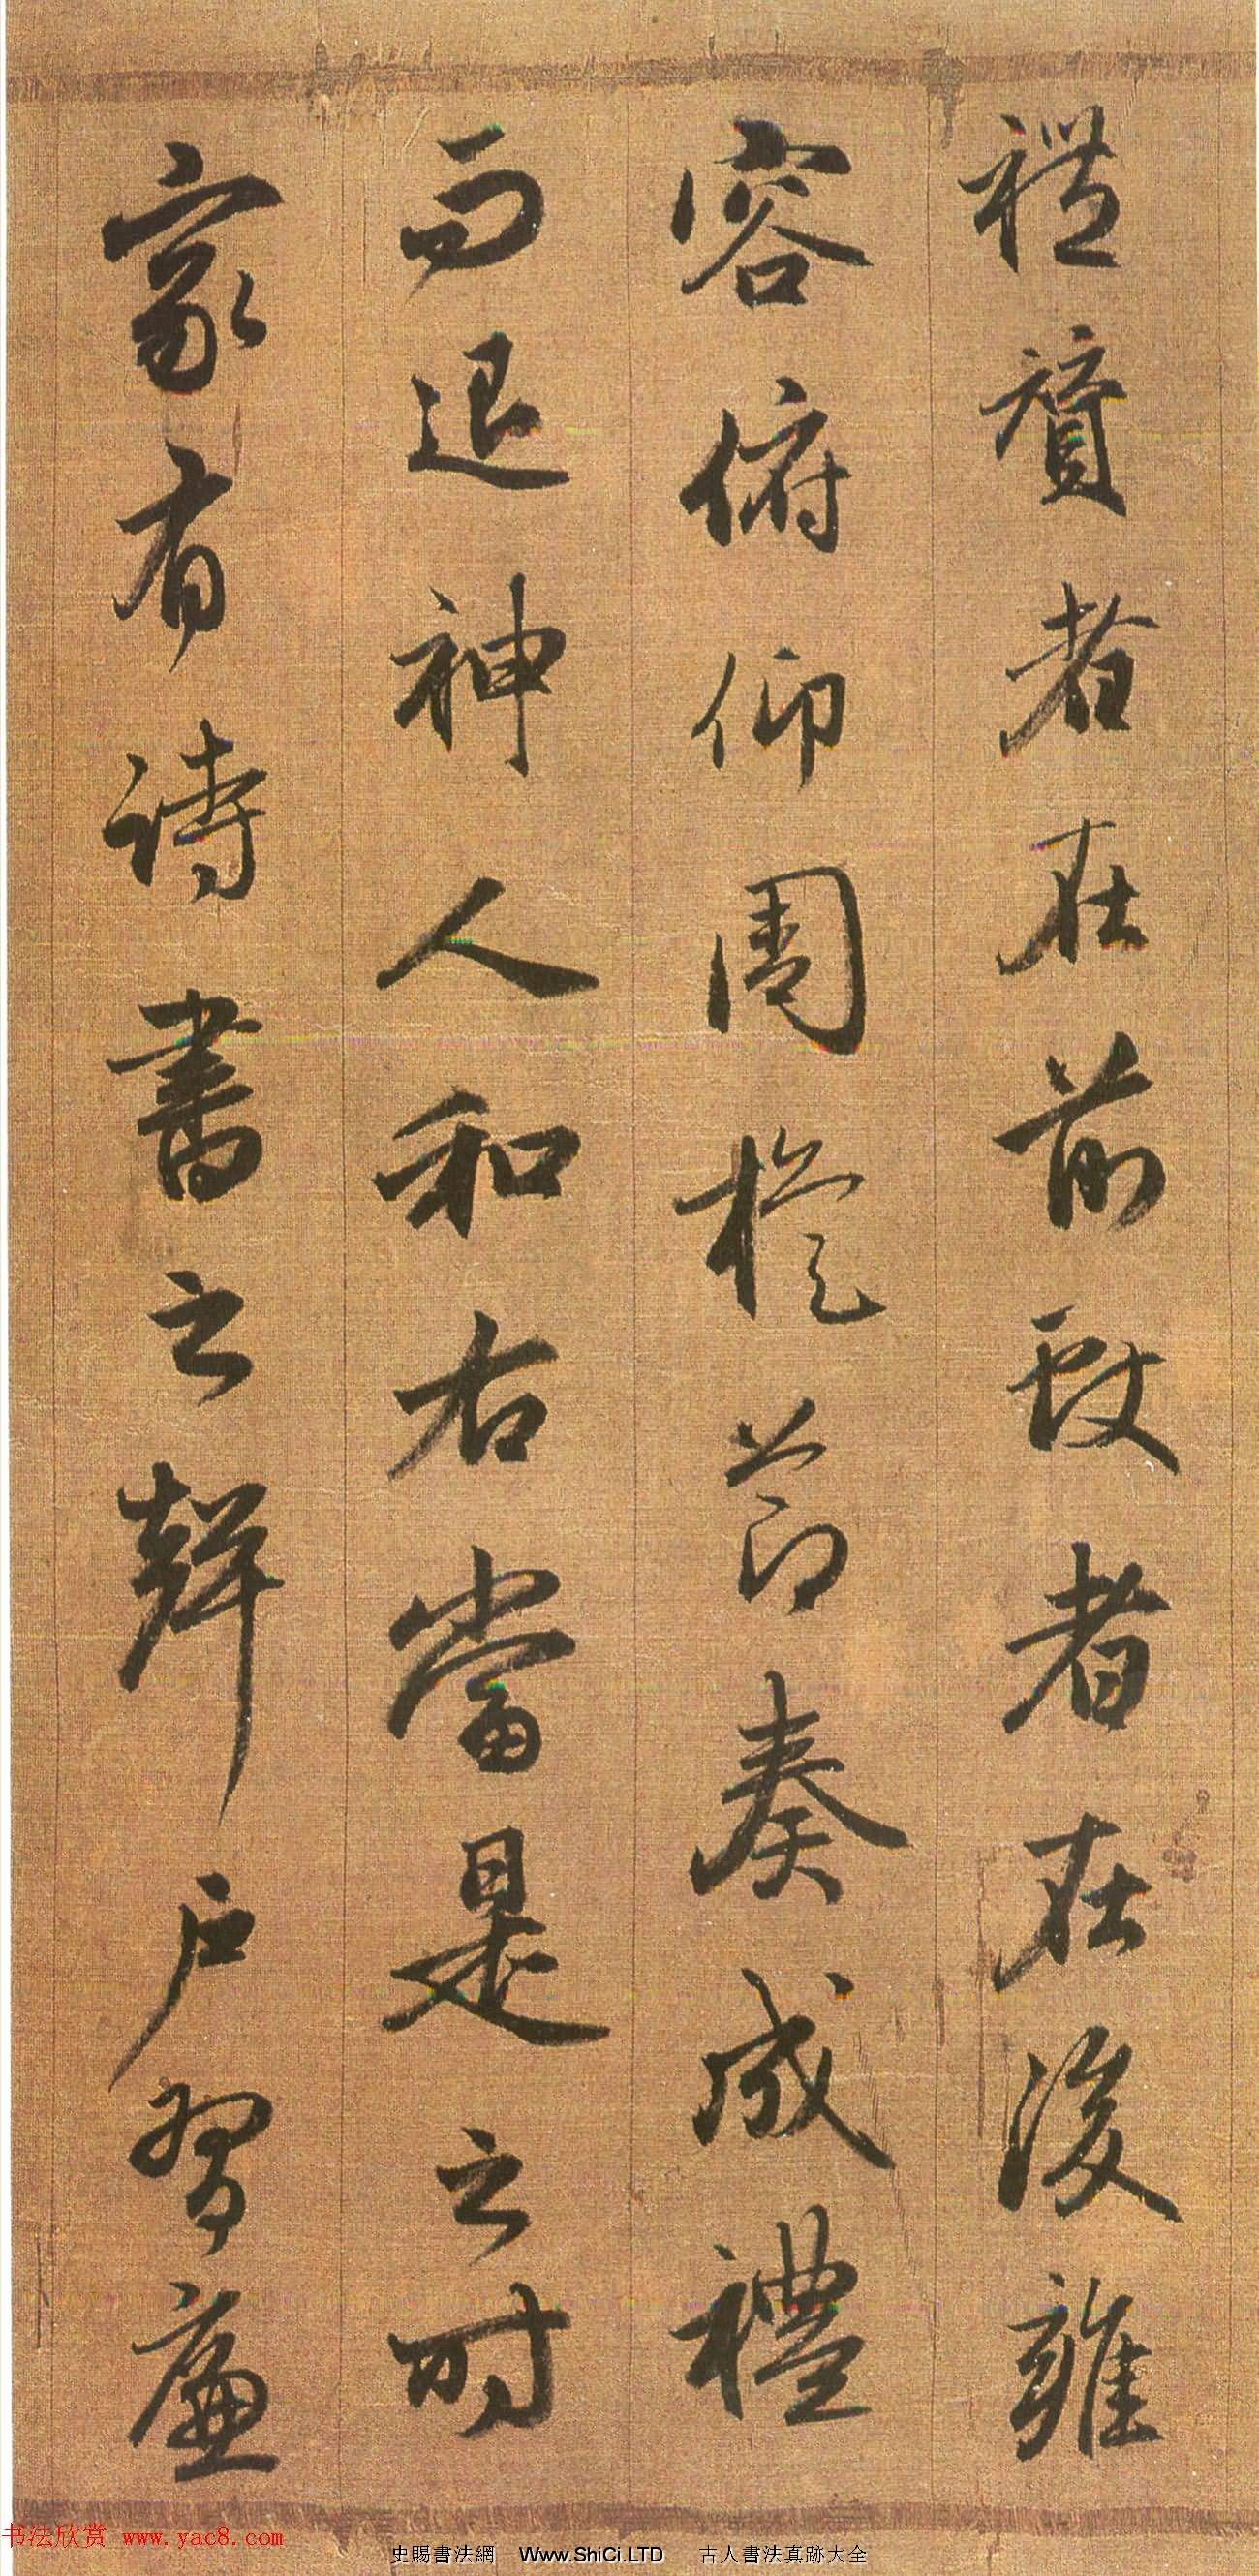 禮贊者在前致者在後雍
容俯仰周旋節奏成禮
而退神人和右當是之時
家有詩書之聲戶習廉
书法欣赏 www.yac8.com
史賜書法網 Www.ShiCi.LTD 古人書法真跡大全